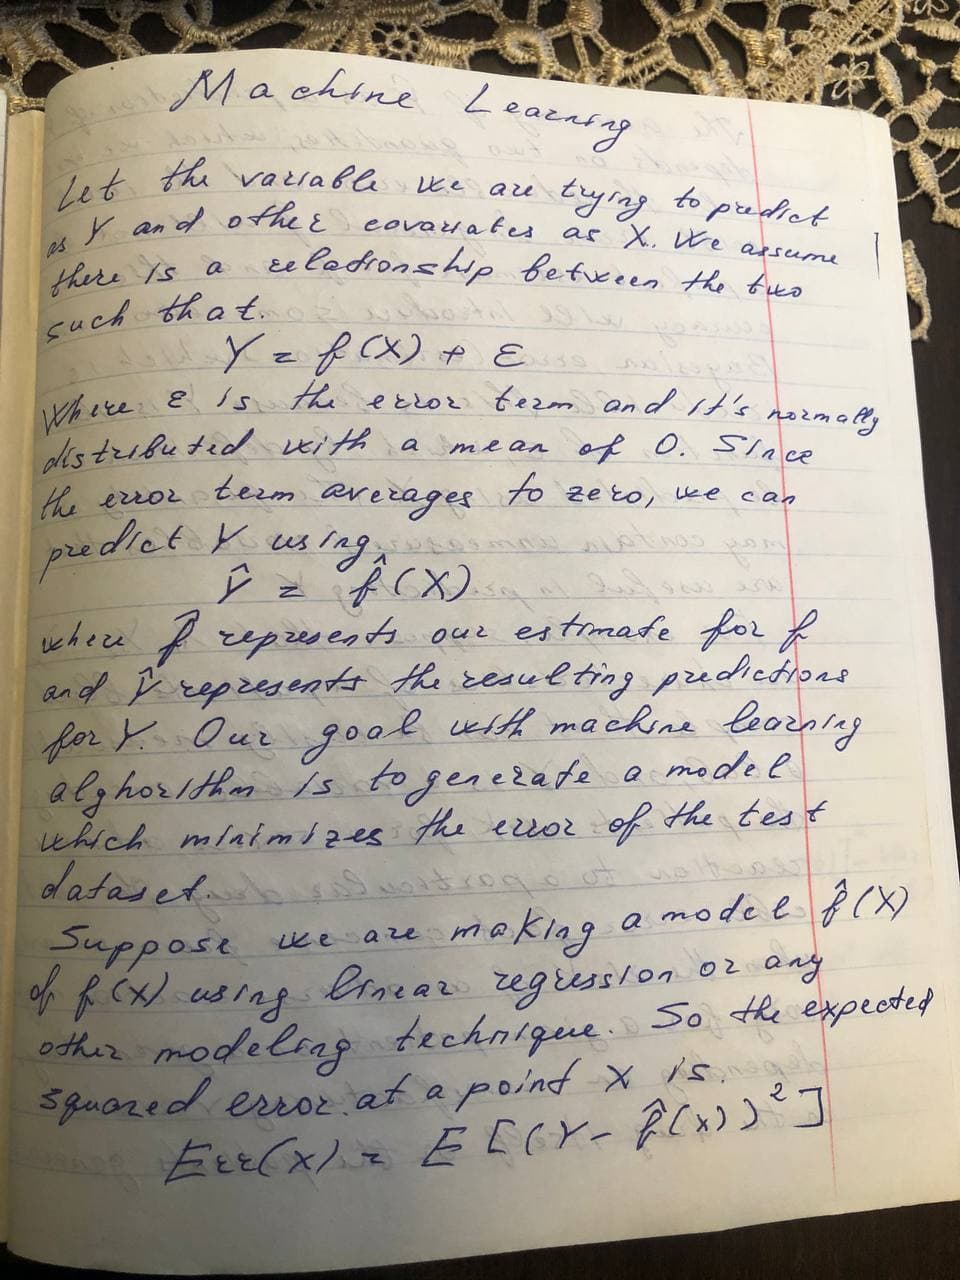 Machine Learning
Let the variable we are trying to predict
as Y and other covariates as X. We assume
there is a relationship between the two
such that.
Y = f(X) + ε
Where ε is the error term and it's normally
distributed with a mean of 0. Since
the error term averages to zero, we can
predict Y using,
Ŷ = f̂(X)
where f̂ represents our estimate for f
and Ŷ represents the resulting predictions
for Y. Our goal with machine learning
alghorithm is to generate a model
which minimizes the error of the test
dataset.
Suppose we are making a model f̂(X)
of f(X) using linear regression or any
other modeling technique. So the expected
squared error at a point X is.
Err(x) = E[(Y - f̂(x))²]